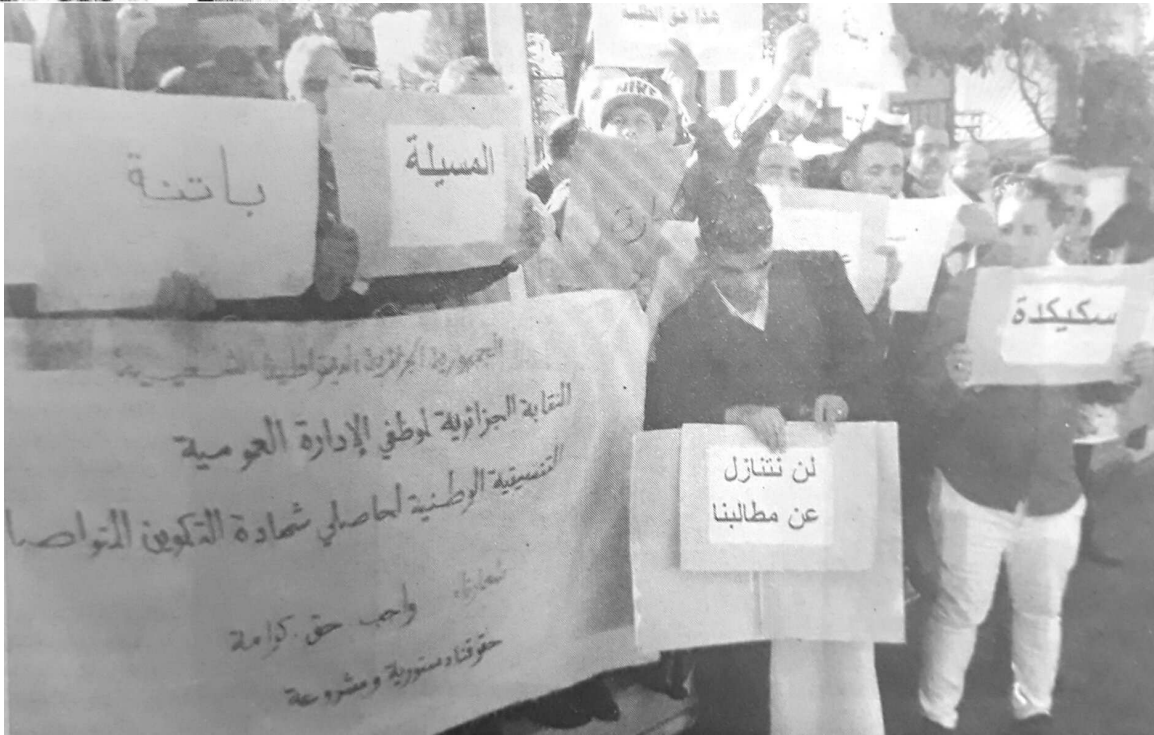 هذا حق الطلبة
NIKE
باتنة
المسيلة
سكيكدة
الجمهورية الجزائرية الديمقراطية الشعبية
النقابة الجزائرية لموظفي الإدارة العومية
التنسيقية الوطنية لحاصلي شهادة التكوين المتواصل
شعارنا واجب حق كرامة
حقوقنا دستورية ومشروعة
لن نتنازل
عن مطالبنا